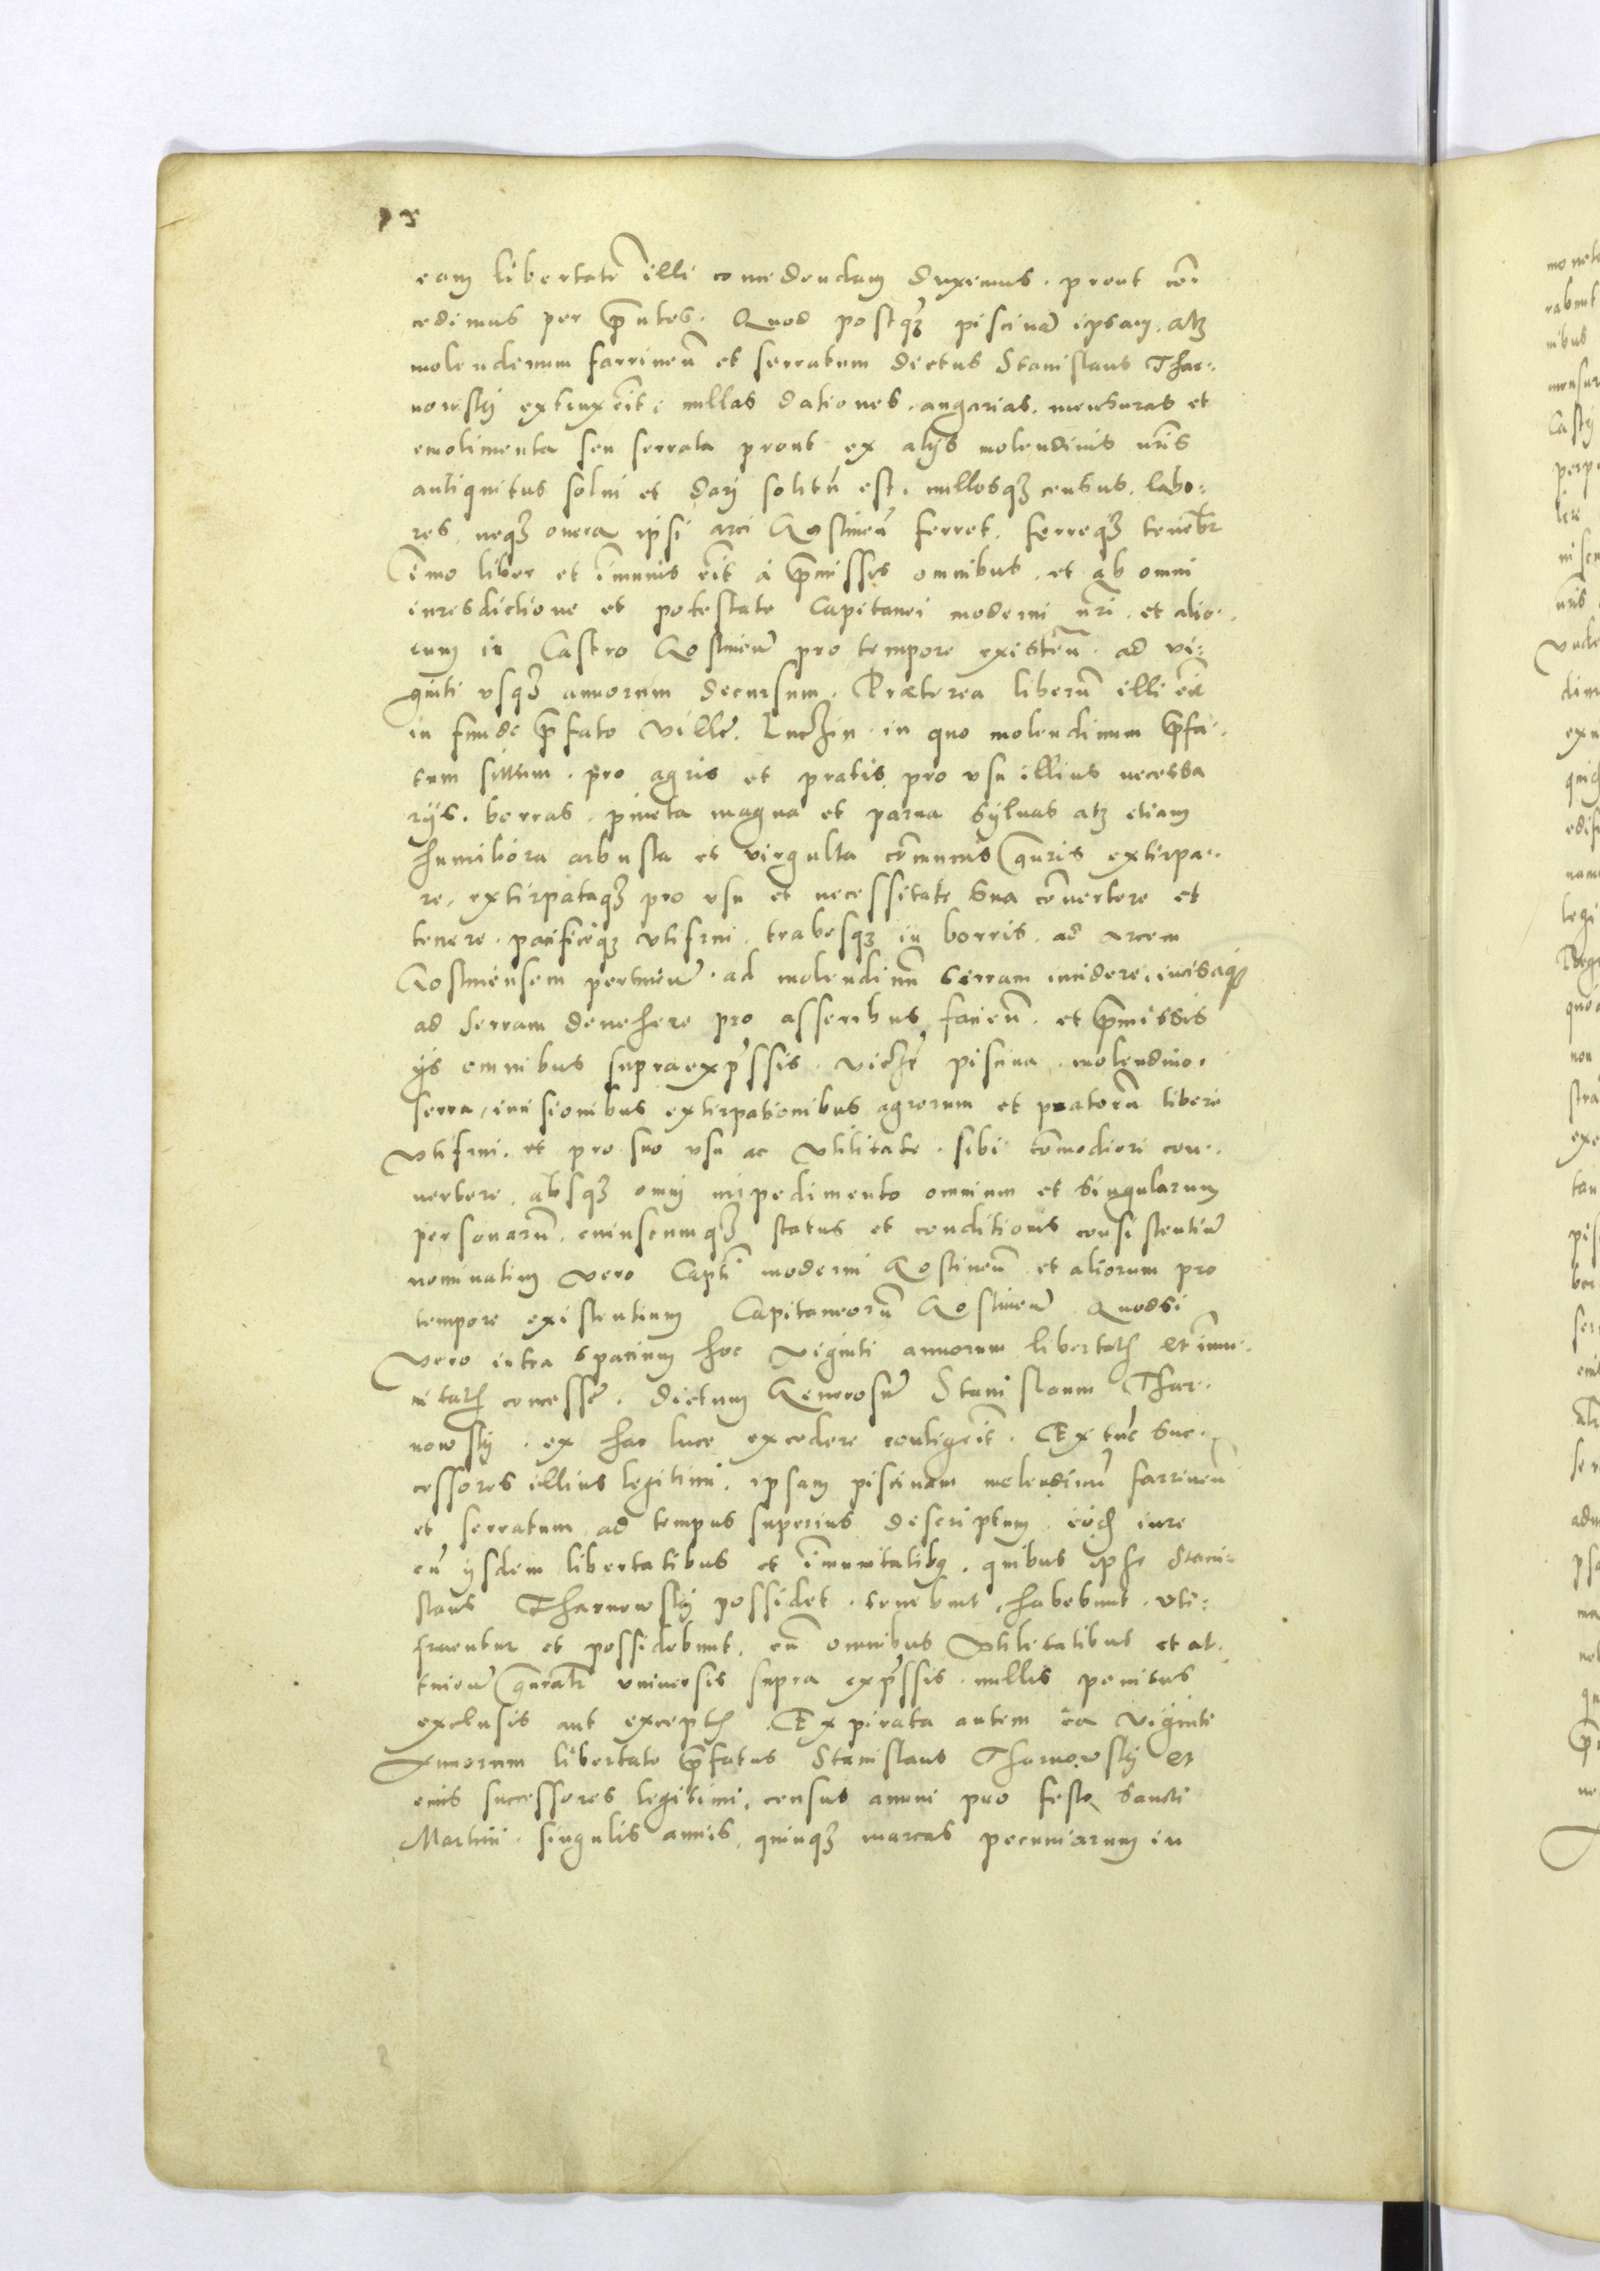 eam libertatē illi concedendam duximus. prout con-
cedimus per p̄ntes. Quod postqȝ piscinā ipsam. atqȝ
molendinum farrineū et serratum dictus Stanislaus Thar-
nowskij extruxerit: nullas dationes. angarias. mensuras et
emolimenta seu serrata prout ex alijs molendinis nr̄is
antiquitus solui et darj solitū est. nullosqȝ census. labo-
res, neqȝ onera ipsi arci Gostinen̄ ferret. ferreqȝ tenebit̄
īmo liber et īmunis erit à p̄missis omnibus. et ab omni
iuresdictione et potestate Capitanei moderni nr̄i. et alio-
rum in Castro Gostinen̄ pro tempore existen̄. ad vi-
ginti vsqȝ annorum decursum. Præterea liberū illi erit
in fundo p̄fato villæ. in quo molendinum p̄fa-
tum situm. pro agris et pratis pro vsu illius necessa
rijs. borras. pineta magna et parua syluas atqȝ etiam
humibora arbusta et virgulta cōmunis gn̄ris extirpa-
re, extirpataqȝ pro vsu et necessitate sua cōuertere et
tenere. pacificeqȝ vtifrui. trabesqȝ in borris. ad arcem
Gostinensem pertinen̄. ad molendinū serram incidere, incisasqȝ
ad serram deuehere pro asseribus facien̄. et p̄missis
ijs omnibus supraexp̄ssis. piscina. molendino.
serra, incisionibus extirpationibus agrorum et pratorū libere
vtifrui. et pro suo vsu ac vtilitate. sibi cōmodiori con-
uertere. absqȝ omnj impedimento omnium et singularum
personarū. cuiuscumqȝ status et conditionis consistentiū
nominatim vero Capt̄i moderni Gostinen̄ et aliorum pro
tempore existentium Capitaneorū Gostinen̄. Quodsi
vero intra spacium hoc viginti annorum libertatis et īmu-
nitatis concessæ. dictum Generosū Stanislaum Thar-
nowskij. ex hac luce excedere contigerit. Ex tūc suc-
cessores illius legitimi. ipsam piscinam molendinū farrineū
et serratum ad tempus superius descriptum. eodē iure
cū ijsdem libertatibus et īmunitatibus. quibus ipse Stani-
slaus Tharnowskij possidet. tenebunt, habebunt. vti-
fruentur et possidebunt. cū omnibus vtilitatibus et at-
tinen̄ gn̄ralr̄ vniuersis supra exp̄ssis. nullis penitus
exclusis aut exceptis. Expirata autem ea viginti
annorum libertate p̄fatus Stanislaus Tharnowskij et
eius successores legitimi. census annui pro festo Sancti
Martini. singulis annis. quinqȝ marcas pecuniarum in